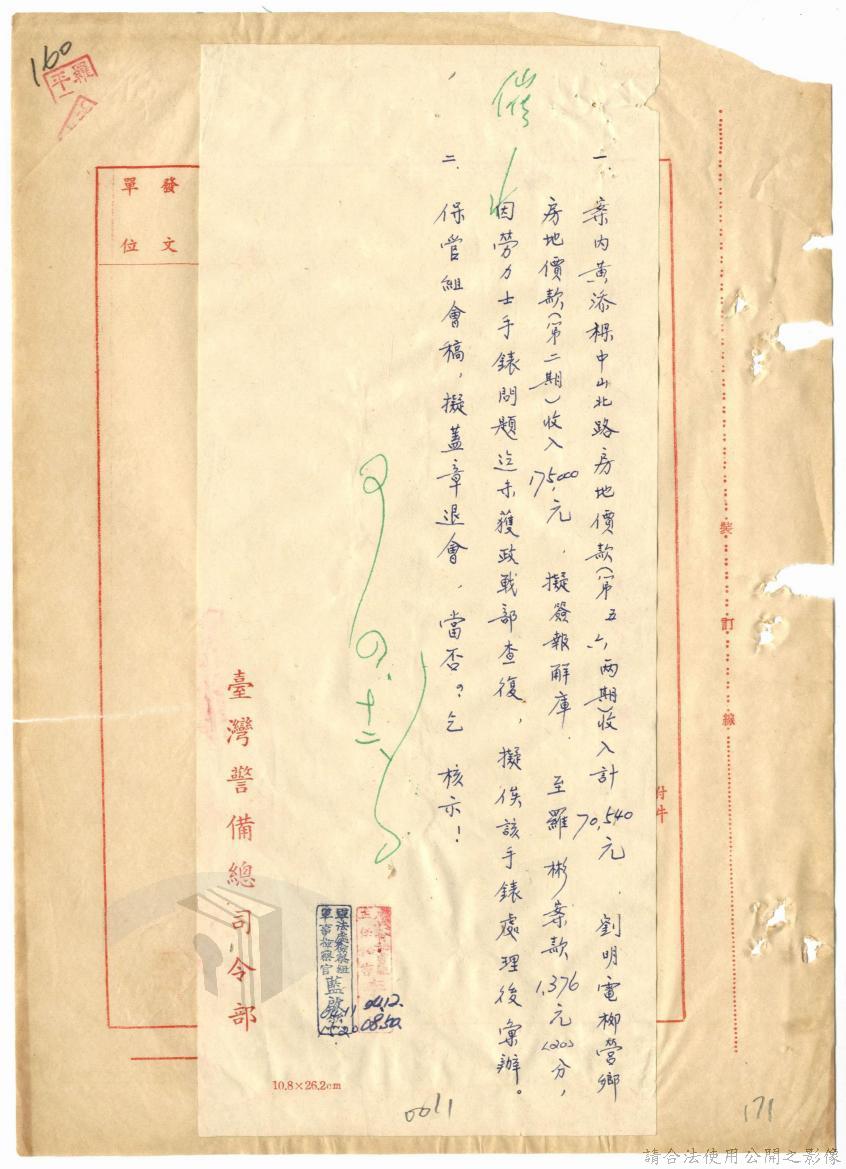 160
催
一、案內黃添樑中山北路房地價款(第五六兩期)收入計70,540元、劉明電柳營鄉
房地價款(第二期)收入175,000元、擬簽報解庫。至羅彬案款1,376元(20)分,
因勞力士手錶問題迄未獲政戰部查復,擬俟該手錶處理後彙辦。
二、保管組會稿,擬蓋章退會,當否?乞 核示!
發文
單位
附件
裝
訂
線
臺灣警備總司令部
軍法處檢察組
軍事檢察官藍
04.12.
08.50
10.8×26.2cm
0011
171
請合法使用公開之影像